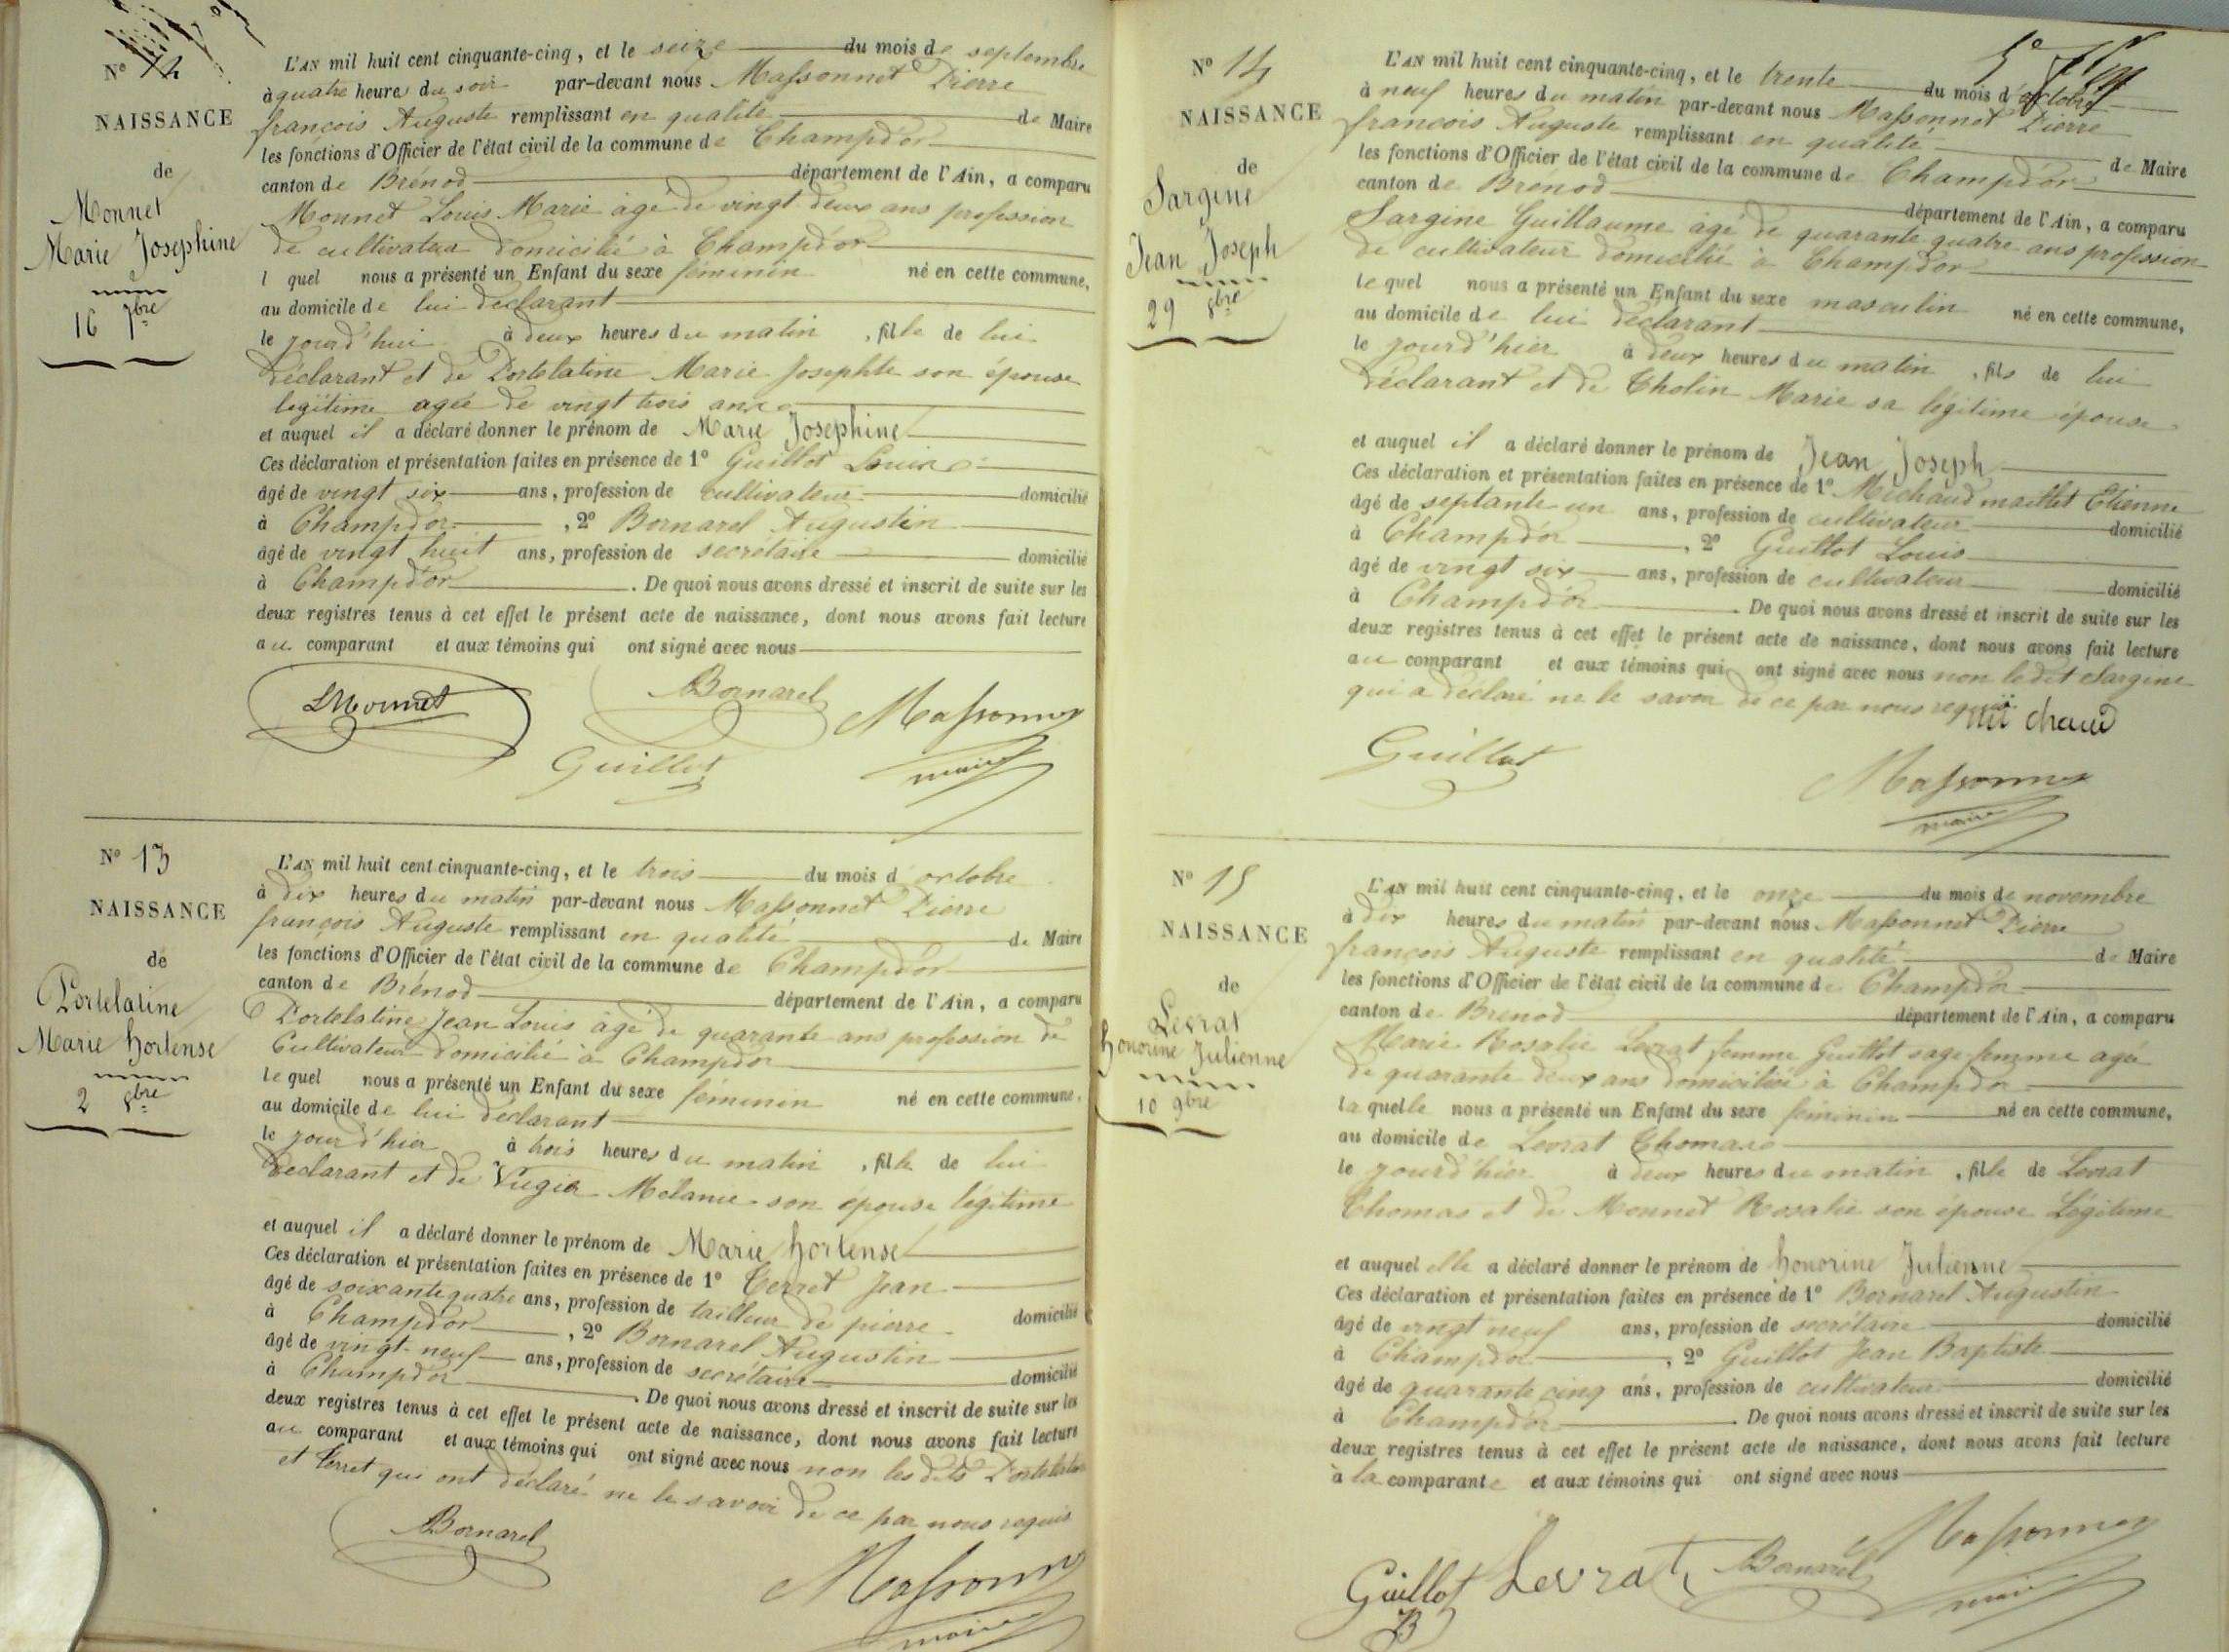 Nº 12
NAISSANCE
de
Monnet
Marie Josephine
16 7bre
L'AN mil huit cent cinquante-cinq, et le seize du mois de septembre
à quatre heures du soir par-devant nous Massonnet Pierre
françois Auguste remplissant en qualité de Maire
les fonctions d'Officier de l'état civil de la commune de Champdor
canton de Brénod département de l'Ain, a comparu
Monnet Louis Marie âgé de vingt deux ans profession
de cultivateur domicilié à Champdor
l quel nous a présenté un Enfant du sexe féminin né en cette commune,
au domicile de lui déclarant
le jourd'hui à deux heures du matin, fille de lui
déclarant et de Portelatine Marie Josephte son épouse
legitime agée de vingt trois ans
et auquel il a déclaré donner le prénom de Marie Josephine
Ces déclaration et présentation faites en présence de 1º Guillot Louis
âgé de vingt six ans, profession de cultivateur domicilié
à Champdor, 2º Bornarel Augustin
âgé de vingt huit ans, profession de secrétaire domicilié
à Champdor. De quoi nous avons dressé et inscrit de suite sur les
deux registres tenus à cet effet le présent acte de naissance, dont nous avons fait lecture
au comparant et aux témoins qui ont signé avec nous
LMonnet Bornarel Massonnet
Guillot maire
Nº 13
NAISSANCE
de
Portelatine
Marie hortense
2 8bre
L'AN mil huit cent cinquante-cinq, et le trois du mois d'octobre
à dix heures du matin par-devant nous Massonnet Pierre
françois Auguste remplissant en qualité de Maire
les fonctions d'Officier de l'état civil de la commune de Champdor
canton de Brénod département de l'Ain, a comparu
Portelatine Jean Louis âgé de quarante ans profession de
Cultivateur domicilié à Champdor
le quel nous a présenté un Enfant du sexe féminin né en cette commune,
au domicile de lui déclarant
le jourd'hier à trois heures du matin, fille de lui
déclarant et de Mélanie son épouse légitime
et auquel il a déclaré donner le prénom de Marie hortense
Ces déclaration et présentation faites en présence de 1º Terret Jean
âgé de soixante quatre ans, profession de tailleur de pierre domicilié
à Champdor, 2º Bornarel Augustin
âgé de vingt-neuf ans, profession de secrétaire domicilié
à Champdor. De quoi nous avons dressé et inscrit de suite sur les
deux registres tenus à cet effet le présent acte de naissance, dont nous avons fait lecture
au comparant et aux témoins qui ont signé avec nous non lesdits Portelatine
et Terret qui ont déclaré ne le savoir de ce par nous requis
Bornarel Massonnet
maire
Nº 14
NAISSANCE
de
Sargine
Jean Joseph
29 8bre
L'AN mil huit cent cinquante-cinq, et le trente du mois d'octobre
à neuf heures du matin par-devant nous Massonnet Pierre
françois Auguste remplissant en qualité de Maire
les fonctions d'Officier de l'état civil de la commune de Champdor
canton de Brénod département de l'Ain, a comparu
Sargine Guillaume âgé de quarante quatre ans profession
de cultivateur domicilié à Champdor
le quel nous a présenté un Enfant du sexe masculin né en cette commune,
au domicile de lui déclarant
le jourd'hier à deux heures du matin, fils de lui
déclarant et de Tholin Marie sa légitime épouse
et auquel il a déclaré donner le prénom de Jean Joseph
Ces déclaration et présentation faites en présence de 1º Michaud maillet Etienne
âgé de septante un ans, profession de cultivateur domicilié
à Champdor, 2º Guillot Louis
âgé de vingt six ans, profession de cultivateur domicilié
à Champdor. De quoi nous avons dressé et inscrit de suite sur les
deux registres tenus à cet effet le présent acte de naissance, dont nous avons fait lecture
au comparant et aux témoins qui ont signé avec nous non ledit Sargine
qui a déclaré ne le savoir de ce par nous requis
mi chaud
Guillot Massonnet
maire
Nº 15
NAISSANCE
de
Levrat
honorine Julienne
10 9bre
L'AN mil huit cent cinquante-cinq, et le onze du mois de novembre
à dix heures du matin par-devant nous Massonnet Pierre
françois Auguste remplissant en qualité de Maire
les fonctions d'Officier de l'état civil de la commune de Champdor
canton de Brenod département de l'Ain, a comparu
Marie Rosalie Levrat femme Guillot sage-femme agée
de quarante deux ans domiciliée à Champdor
la quelle nous a présenté un Enfant du sexe féminin né en cette commune,
au domicile de Levrat Thomas
le jourd'hier à deux heures du matin, fille de Levrat
Thomas et de Monnet Rosalie son épouse Légitime
et auquel elle a déclaré donner le prénom de honorine Julienne
Ces déclaration et présentation faites en présence de 1º Bornarel Augustin
âgé de vingt neuf ans, profession de secrétaire domicilié
à Champdor, 2º Guillot Jean Baptiste
âgé de quarante cinq ans, profession de cultivateur domicilié
à Champdor. De quoi nous avons dressé et inscrit de suite sur les
deux registres tenus à cet effet le présent acte de naissance, dont nous avons fait lecture
à la comparante et aux témoins qui ont signé avec nous
Guillot Levrat Bornarel Massonnet
JB maire